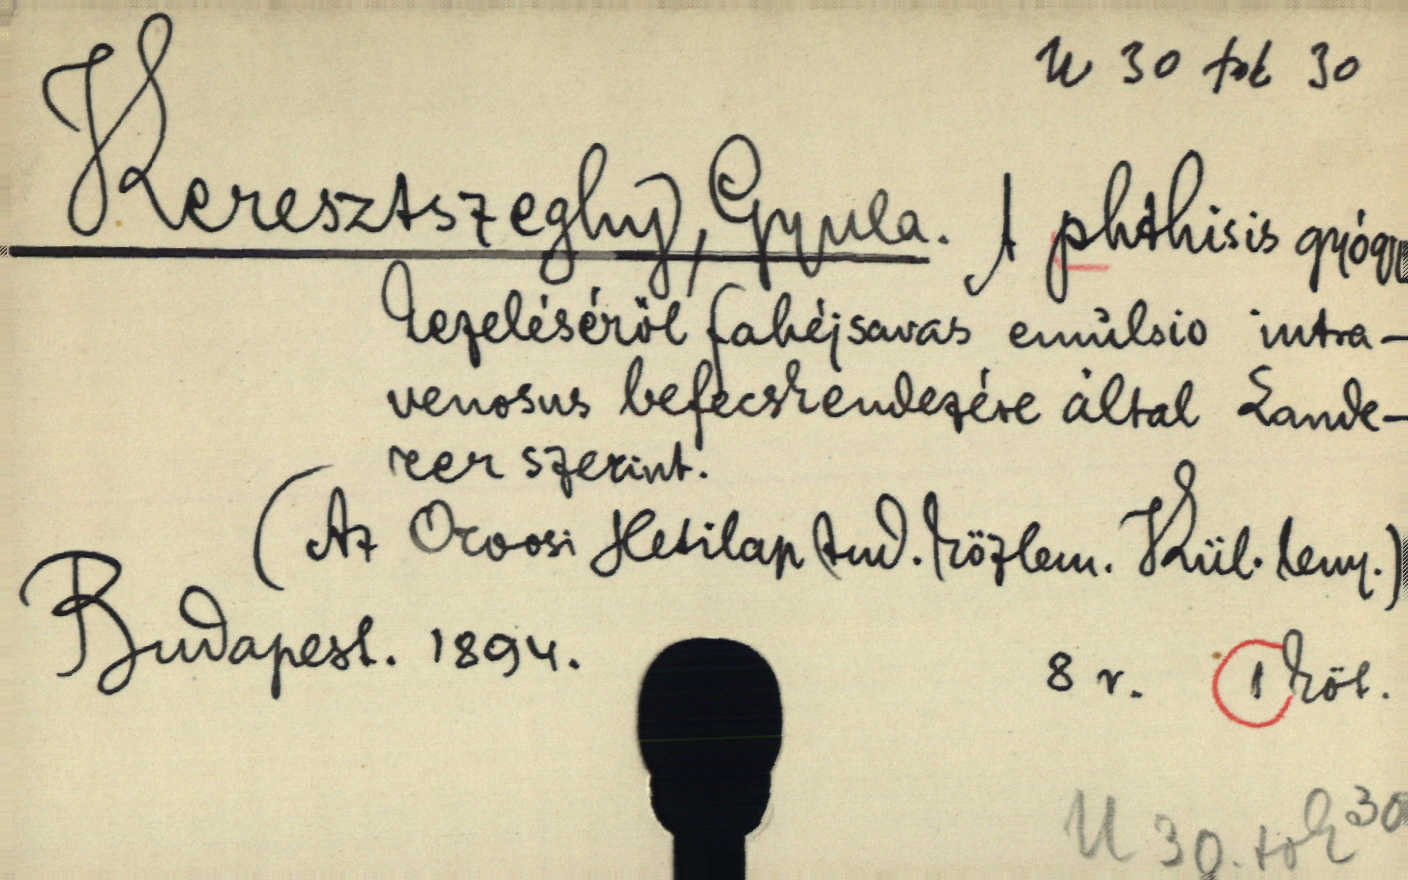 U 30 tok 30
Keresztszeghy, Gyula. A phthisis gyógy
kezeléséről fahéjsavas emulsio intra-
venosus befecskendezése által Lande-
rer szerint.
(Az Orvosi Hetilap tud. közlem. Kül. leny.)
Budapest. 1894.
8 r. 1 köt.
U 30. tok 30